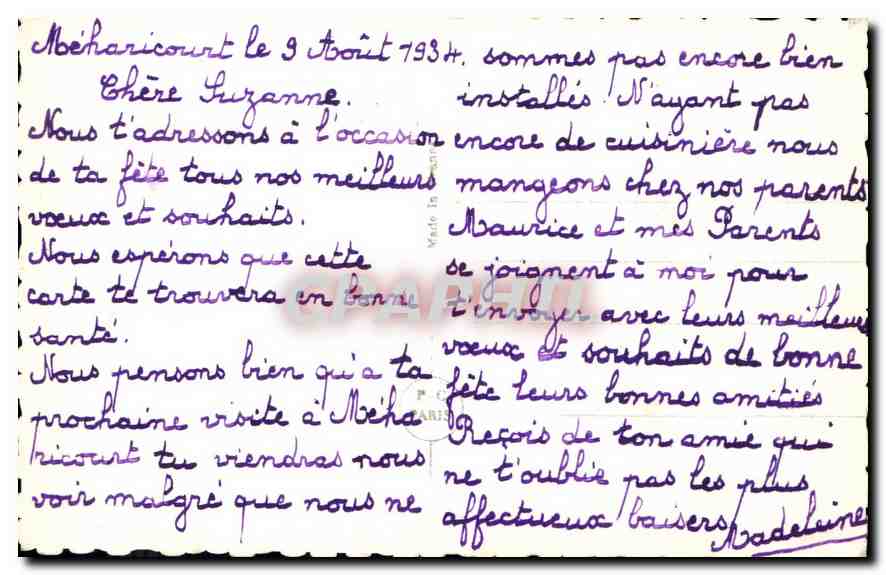 Méharicourt le 9 Août 1934.
Chère Suzanne.
Nous t'adressons à l'occasion
de ta fête tous nos meilleurs
vœux et souhaits.
Nous espérons que cette
carte te trouvera en bonne
santé.
Nous pensons bien qu'a ta
prochaine visite à Méha
ricourt tu viendras nous
voir malgré que nous ne
sommes pas encore bien
installés. N'ayant pas
encore de cuisinière nous
mangeons chez nos parents
Maurice et mes Parents
se joignent à moi pour
t'envoyer avec leurs meilleurs
vœux et souhaits de bonne
fête leurs bonnes amitiés
Reçois de ton amie qui
ne t'oublie pas les plus
affectueux baisers
Madeleine
Made in France
P C
PARIS